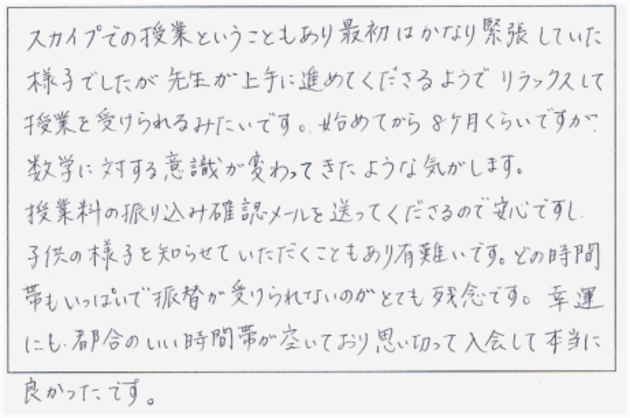 スカイプでの授業ということもあり最初はかなり緊張していた
様子でしたが先生が上手に進めてくださるようでリラックスして
授業を受けられるみたいです。始めてから8ヶ月くらいですが、
数学に対する意識が変わってきたような気がします。
授業料の振り込み確認メールを送ってくださるので安心ですし
子供の様子を知らせていただくこともあり有難いです。どの時間
帯もいっぱいで振替が受けられないのがとても残念です。幸運
にも都合のいい時間帯が空いており思い切って入会して本当に
良かったです。